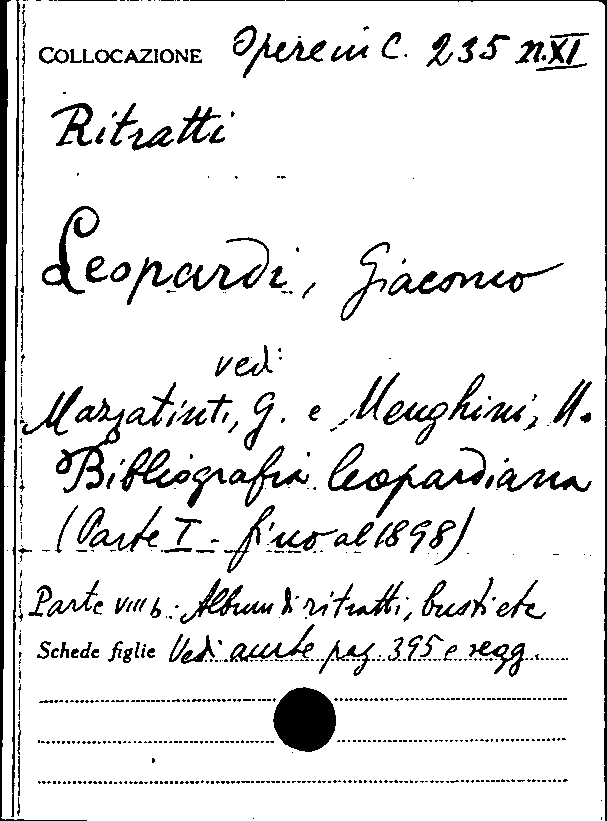 COLLOCAZIONE Opere in C. 235 n. XI
Ritratti
Leopardi, Giacomo
vedi
Mazzatinti, G. e Menghini, M.
Bibliografia leopardiana
(Parte I - fino al 1898)
Parte VIII b. Album di ritratti, busti etc
Schede figlie Vedi anche pag. 395 e segg.